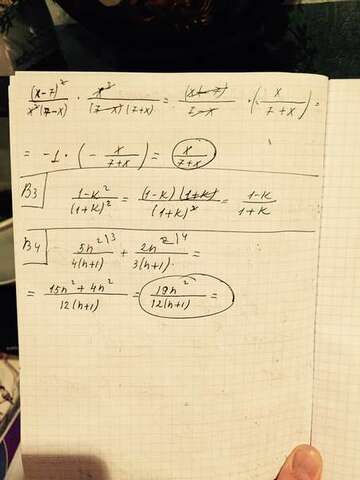 (x-7)²/x²(7-x) · x²/(7-x)(7+x) = (x-7)/7-x · (-x/7+x) =
= -1 · (- x/7+x) = x/7+x
B3 1-k²/(1+k)² = (1-k)(1+k)/(1+k)² = 1-k/1+k
B4 5n²\3/4(n+1) + 2n²\4/3(n+1) =
= 15n²+4n²/12(n+1) = 19n²/12(n+1) =